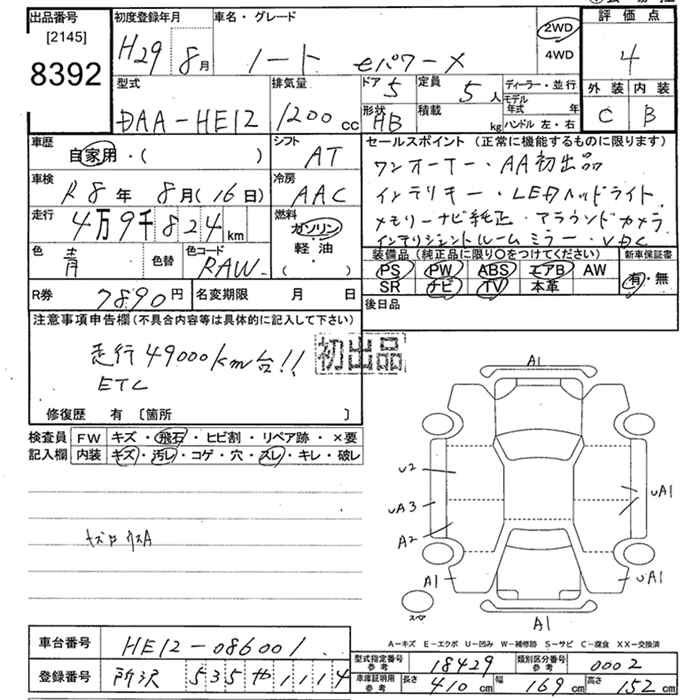 出品番号
[2145]
8392
初度登録年月
H29 8月
車名・グレード
ノート eパワーX
2WD
4WD
評価点
4
外装 内装
C B
型式
DAA-HE12
排気量
1200cc
ドア 5
定員 5人
形状 HB
積載 kg
ディーラー・並行
モデル年式 年
ハンドル 左・右
車歴
自家用・( )
シフト
AT
車検
R8年 8月(16日)
冷房
AAC
走行
4万9千824km
燃料
ガソリン・軽油
( )
色
青
色替
色コード
RAW
R券
7890円
名変期限 月 日
セールスポイント(正常に機能するものに限ります)
ワンオーナー・AA初出品
インテリキー・LEDヘッドライト
メモリーナビ純正・アラウンドカメラ
インテリジェントルームミラー・VDC
装備品(純正品に限り〇をつけてください)
PS PW ABS エアB AW
SR ナビ TV 本革
新車保証書
有・無
後日品
注意事項申告欄(不具合内容等は具体的に記入して下さい)
走行49000km台!!
ETC
初出品
修復歴 有 〔箇所 〕
検査員記入欄
FW キズ・飛石・ヒビ割・リペア跡・×要
内装 キズ・汚レ・コゲ・穴・スレ・キレ・破レ
A1
U2
UA3
A2
A1
UA1
UA1
A1
スペア
A-キズ E-エクボ U-凹み W-補修跡 S-サビ C-腐食 XX-交換済
車台番号
HE12-086001
登録番号
所沢 535 や 1114
型式指定番号参考
18429
類別区分番号参考
0002
車庫証明用参考
長さ 410cm 幅 169cm 高さ 152cm